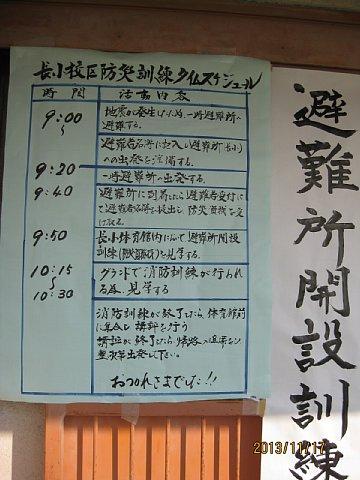 長小校区防災訓練タイムスケジュール
時間 活動内容
9:00
～
地震が発生したため、一時避難所へ
避難する。
避難者名簿に記入し避難所(長小)
への出発を準備する。
9:20
一時避難所へ出発する。
9:40
避難所に到着したら避難者受付に
て避難者名簿を提出し、防災資機を
受け取る。
9:50
長小体育館内において避難所開設
訓練を見学する。
10:15
～
10:30
グランドで消防訓練が行われ
る為、見学する
消防訓練が終了したら、体育館前
に集合し講評を行う
講評が終了したら
出発して下さい。
おつかれさまでした!!
避難所開設訓練
2013/11/17